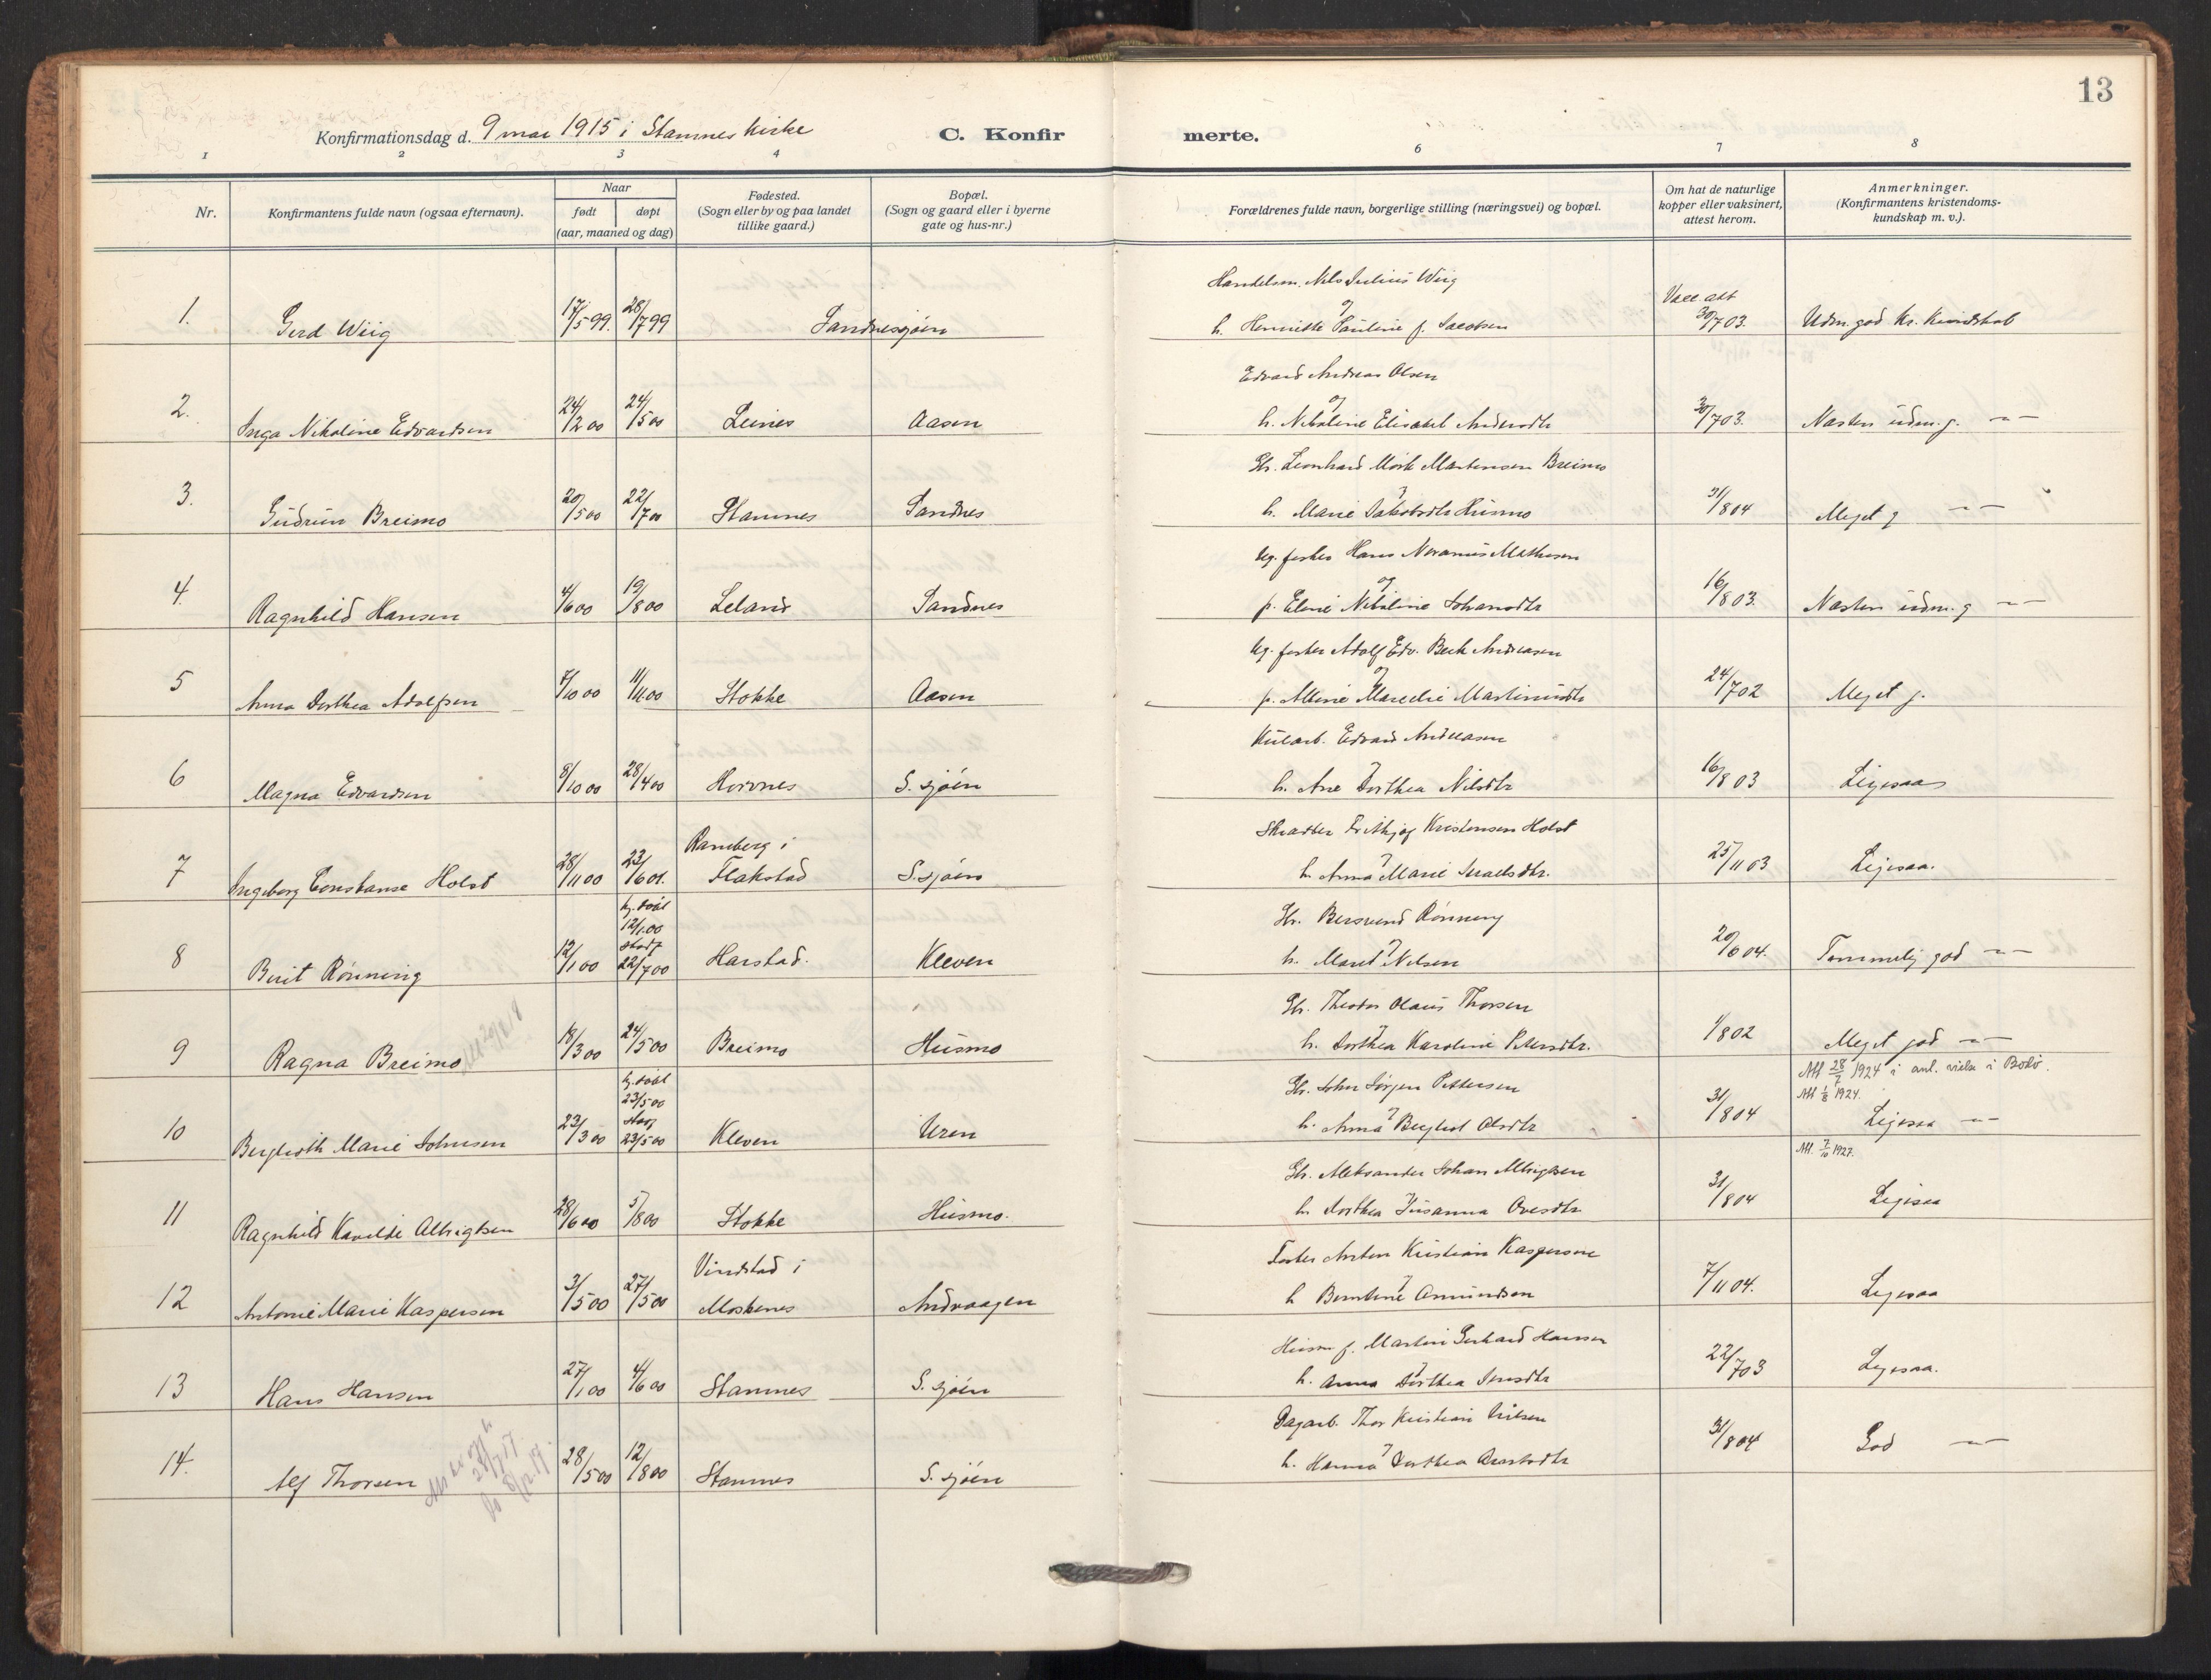 13
Konfirmationsdag d. 9 mai 1915 i Stamnes kirke
C. Konfir merte.
1 2 3 4 6 7 8
Nr.
Konfirmantens fulde navn (ogsaa efternavn).
Naar
født døpt
(aar, maaned og dag)
Fødested.
(Sogn eller by og paa landet
tillike gaard.)
Bopæl.
(Sogn og gaard eller i byerne
gate og hus-nr.)
Forældrenes fulde navn, borgerlige stilling (næringsvei) og bopæl.
Om hat de naturlige
kopper eller vaksinert,
attest herom.
Anmerkninger.
(Konfirmantens kristendoms-
kundskap m. v.).
Handelsm. Nils Julius Wiig
og
Vacc att
1. Gerd Wiig 17/5 99. 28/7 99 Sandnessjøen h. Henriette Pauline f. Jacobsen 30/7 03. Udm. god Kr. Kundskab
Edvard Andreas Olsen
og
2. Inga Nikoline Edvardsen 24/2 00 24/5 00 Leines Aasen h. Nikoline Elisabet Andersdtr 30/7 03. Næsten udm. g. — —
Gbr. Leonhard Mørk Martinsen Breimo
3. Gudrun Breimo 20/5 00 22/7 00 Stamnes Sandnes h. Marie Jakobsdtr Husmo 31/8 04 Meget g — —
Ug. fisker Hans Neranus Mathisen
og
4. Ragnhild Hansen 4/6 00 19/8 00 Leland Sandnes p. Eline Nikoline Johansdtr 16/8 03. Næsten udm. g — —
Ug. fisker Adolf Edv. Beck Andreasen
og
5 Anna Dorthea Adolfsen 7/10 00 11/11 00 Stokke Aasen p. Martinusdtr 24/7 02 Meget g.
Kularb. Edvard Andreasen
6 Magna Edvardsen 8/10 00 28/4 00 Horvnes S. sjøen h. Ane Dorthea Nilsdtr 16/8 03 Ligesaa
Skrædder Fritjof Kristensen Holst
Ramberg i
7 Ingeborg Constanse Holst 28/11 00 23/6 01. Flakstad S. sjøen h. Anna Marie Israelsdtr. 25/11 03 Ligesaa.
hj. døbt
12/1 00
Gbr. Bersvend Rønning
stadf
8 Berit Rønning 12/1 00 22/7 00 Harstad. Kleven h. Maret Nilsen 20/6 04. Temmelig god — —
Gbr. Theodor Olaus Thorsen
9 Ragna Breimo 18/3 00 24/5 00 Breimo Husmo h. Dorthea Karoline Petersdtr. 1/8 02 Meget god — —
Att 28/7 1924 i anl. vielse i Bodø.
Att 1/8 1924.
hj. døbt
23/5 00
Gbr. John Jørgen Pettersen
stadf
10 Berglioth Marie Johnsen 23/3 00 23/5 00 Kleven Uren h. Anna Bergitot Olsdtr 31/8 04 Ligesaa — —
Att. 7/10 1927.
Gbr. Aleksander Johan Albrigtsen
11 Ragnhild Kavilde Albrigtsen 28/6 00 5/8 00 Stokke Husmo. h. Dorthea Susanna Ovesdtr 31/8 04 Ligesaa
Fisker Anton Kristian Kaspersen
Vindstad i
12 Antonie Marie Kaspersen 3/5 00 27/5 00 Moskenes Andvaagen h Berntine Amundsen 7/11 04. Ligesaa
Husm f. Martin Gerhard Hansen
13 Hans Hansen 27/1 00 4/6 00 Stamnes S. sjøen h. Anna Dorthea Jensdtr 22/7 03 Ligesaa.
Dagarb. Thor Kristian Nilsen
14. Alf Thorsen 28/5 00 12/8 00 Stamnes S. sjøen h. Hanna Dorthea 31/8 04 God — —